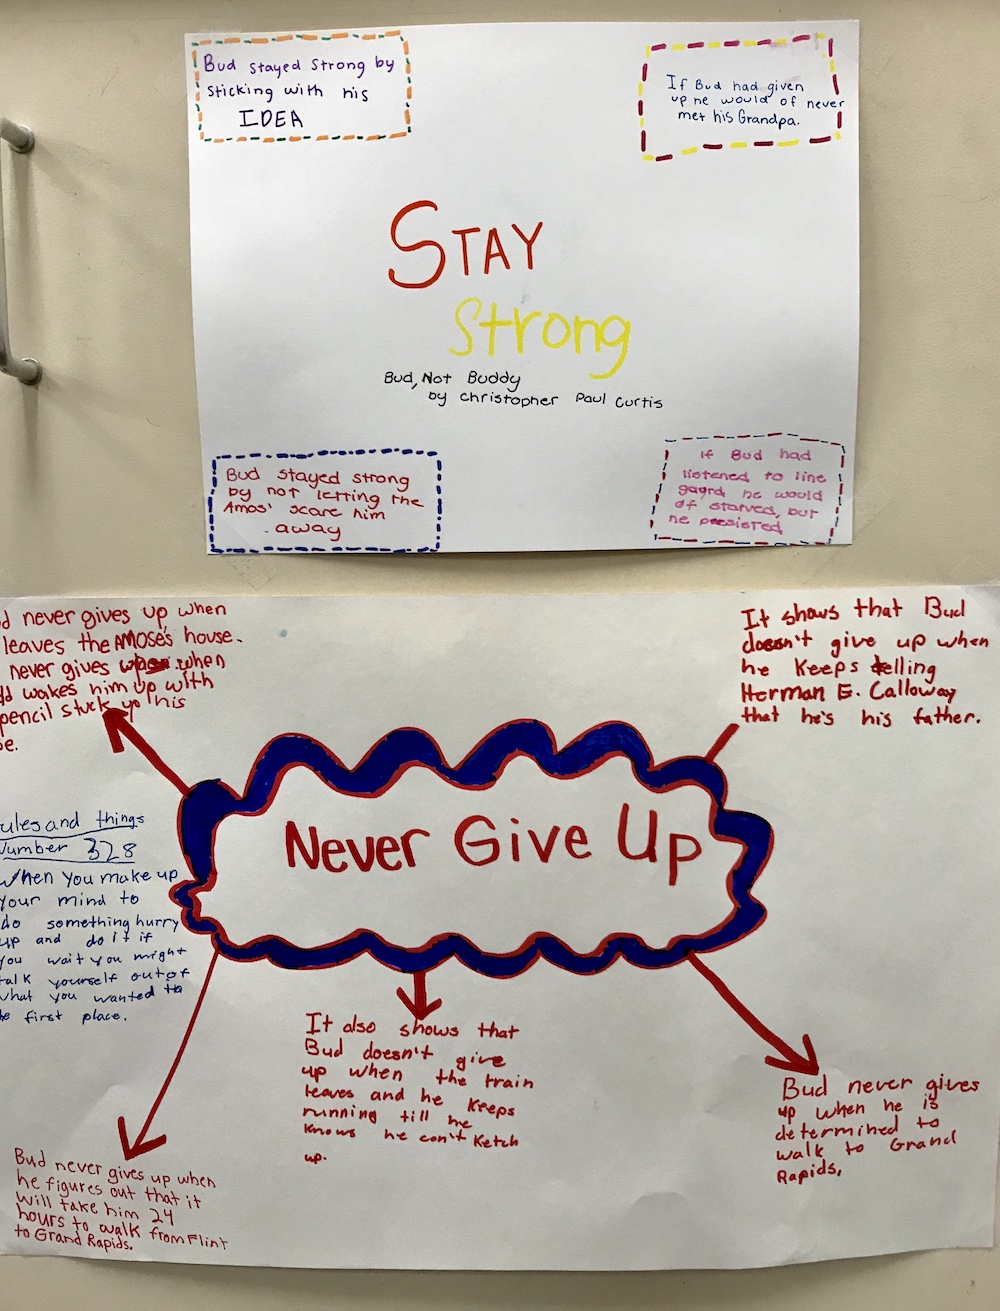 Bud stayed strong by
sticking with his
IDEA
If Bud had given
up he would of never
met his Grandpa.
STAY
Strong
Bud, Not Buddy
by Christopher Paul Curtis
Bud stayed strong
by not letting the
Amos' scare him
away
If Bud had
listened to line
gaurd he would
of starved, but
he presisted
d never gives up when
leaves the AMOSE's house.
never gives when
dd wakes him up with
pencil stuck up his
se.
It shows that Bud
doesn't give up when
he keeps telling
Herman E. Calloway
that he's his father.
Never Give Up
ules and things
Number 328
When you make up
your mind to
do something hurry
up and do it if
you wait you might
talk yourself out of
what you wanted to
he first place.
It also shows that
Bud doesn't give
up when the train
leaves and he keeps
running till he
knows he can't ketch
up.
Bud never gives
up when he is
determined to
walk to Grand
Rapids.
Bud never gives up when
he figures out that it
will take him 24
hours to walk from Flint
to Grand Rapids.